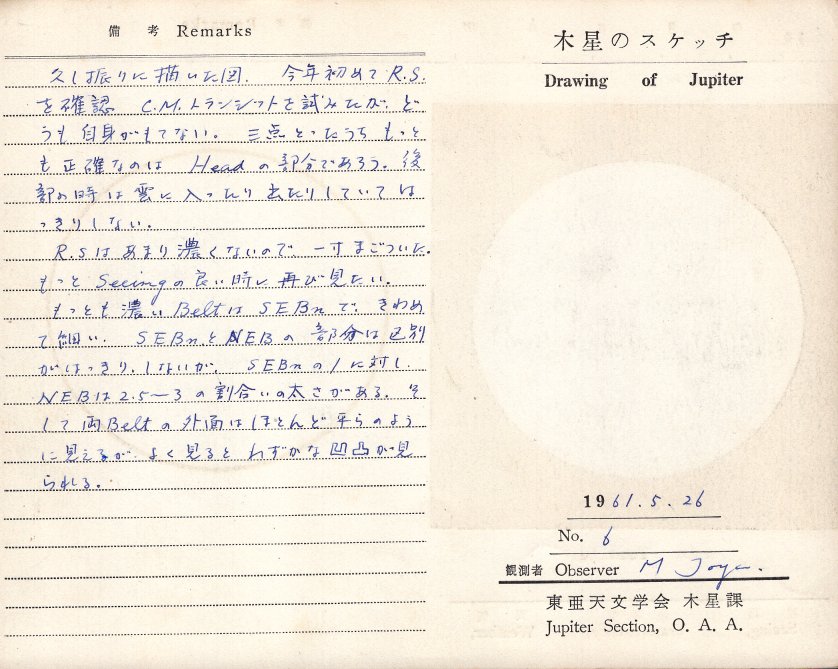 備考 Remarks
久し振りに描いた図. 今年初めて R.S.
を確認 C.M.トランシットを試みたが, ど
うも自身がもてない。三点とったうちもっと
も正確なのは Head の部分であろう。後
部の時は雲に入ったり出たりしていては
っきりしない。
R.Sはあまり濃くないので一寸まごついた.
もっと Seeingの良い時に再び見たい.
もっとも濃いBeltは SEBnで, きわめ
て細い. SEBnとNEBの部分は区別
がはっきり.しないが. SEBnの1に対し.
NEBは2.5〜3の割合いの太さがある. そ
して両Beltの外面はほとんど平らのよう
に見えるが, よく見るとわずかな凹凸が見
られる.
木星のスケッチ
Drawing of Jupiter
1961.5.26
No. 6
観測者 Observer M
東亜天文学会 木星課
Jupiter Section, O. A. A.